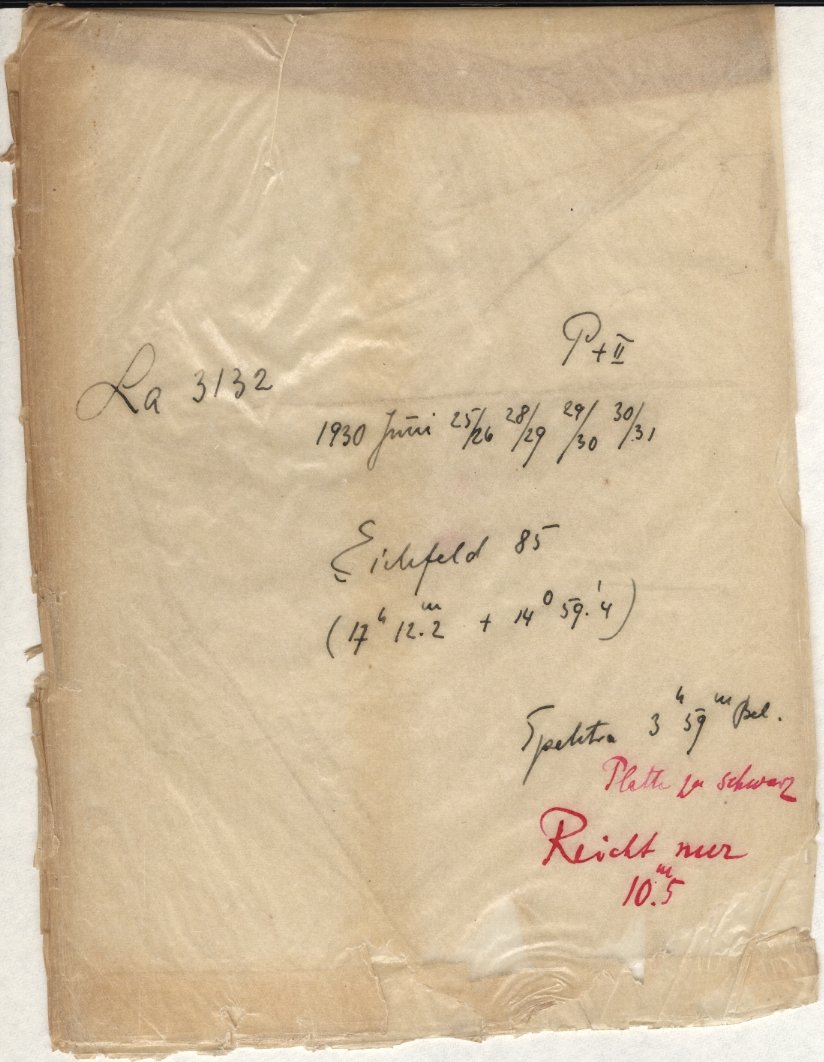 P + II
La 3132
1930 Juni 25/26 28/29 29/30 30/31
Eichfeld 85
(17ʰ 12.ᵐ2 + 14⁰ 59.'4)
Spektra 3ʰ 59ᵐ Bel.
Platte zu schwarz
Reicht nur
10.ᵐ5